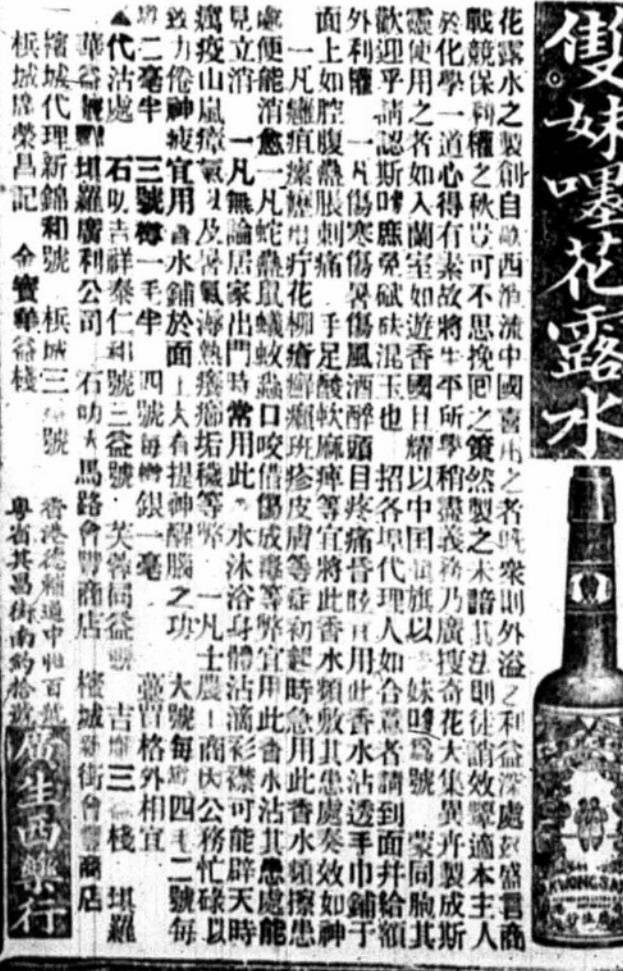 雙妹嘜花露水
KWONG SA
花露水之製創自歐西流中國喜用之者眾則外溢之利益深處言商
戰競保利權之秋豈可不思挽囘之策然製之未諳其法則徒誚效顰適本主人
於化學一道心得有素故將生平所學稍盡義務乃廣搜奇花大集異卉製成斯
靈使用之者如入蘭室如遊香國且耀以中囯旗以妹嘜爲號 蒙同胞其
歡迎乎請認斯嘜庶免碔砆混玉也 招各埠代理人如合意者請到面幷給額
外利權 一凡傷寒傷暑傷風酒醉頭目疼痛昏眩宜用此香水沾透手巾鋪于
面上如腔腹蠱脹刺痛 手足酸軟麻痺等宜將此香水頻敷其患處奏效如神
一凡癰疽瘰癧疔花柳瘡癬癩班疹皮膚等症初起時急用此香水頻擦患
處便能消愈一凡蛇蠱鼠蟻蚊蟲口咬借傷成毒等弊宜用此香水沾其患處能
見立消 一凡無論居家出門時常用此水沐浴身體沾滴衫襟可能辟天時
癘疫山嵐瘴氣以及暑氣海熱癢癤垢穢等弊 一凡士農工商因公務忙碌以
致力倦神疲宜用香水鋪於面上大有提神醒腦之功 大號每四毛二號每
二毫半 三號樽一毛半 四號每樽銀一毫 躉買格外相宜
▲代沽處 石叻吉祥泰仁和號三益號 芙蓉同益 吉三棧 垻羅
華益 垻羅廣利公司 石叻大馬路會豐商店 檳城新街會豐商店
檳城代理新錦和號 梹城三號
梹城席榮昌記 金寶華益棧
香港德輔道中百號
粵省其昌街南約拾號
廣生西藥行